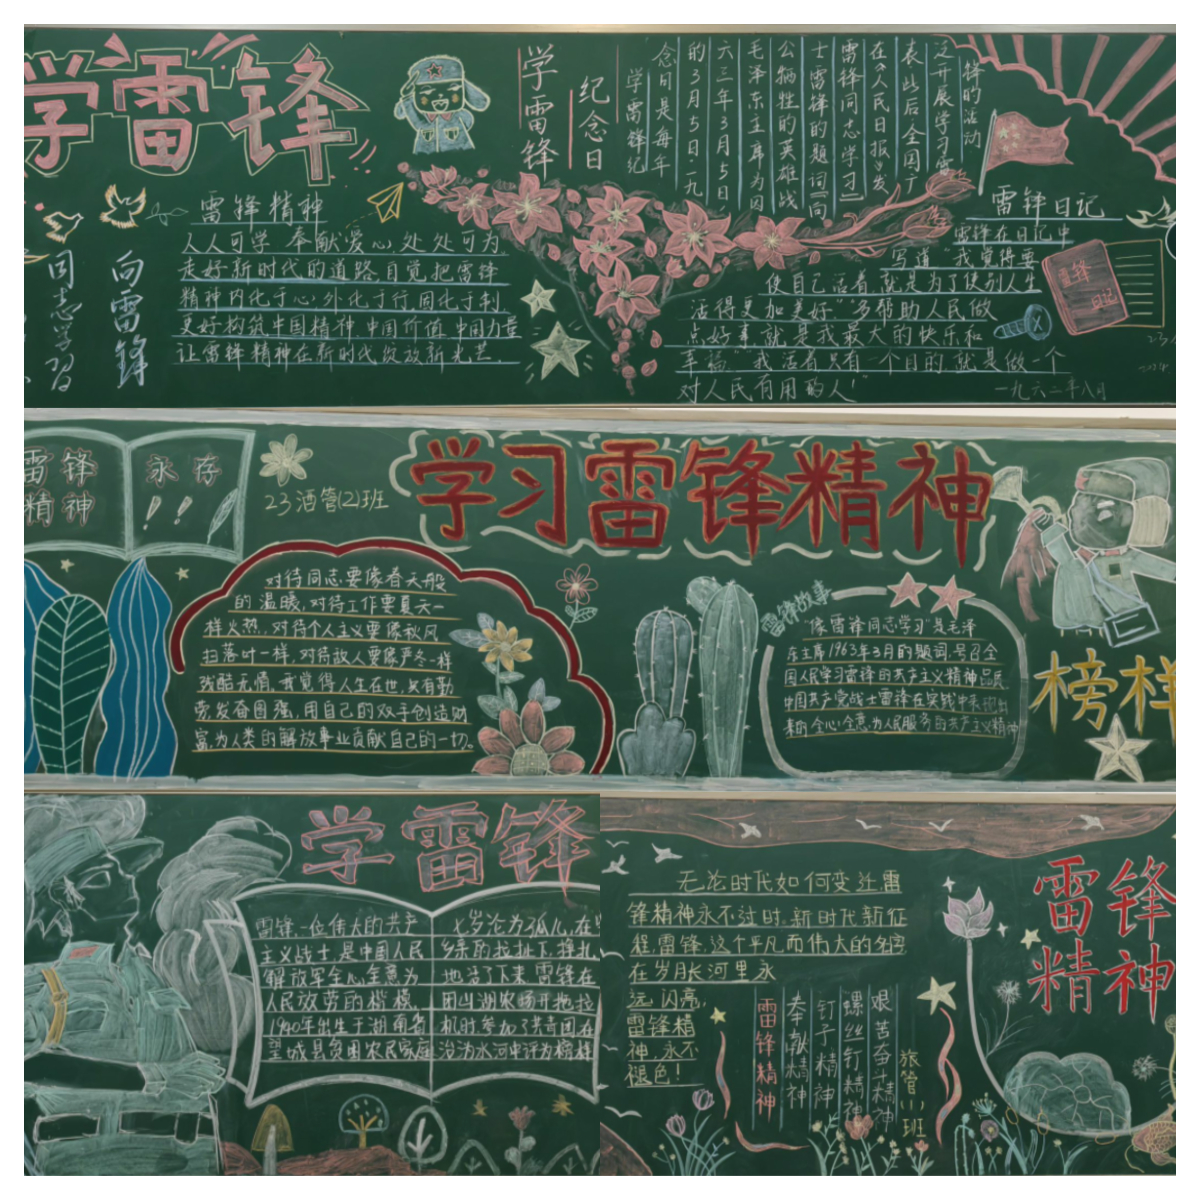 学雷锋
学雷锋
纪念日
学雷锋纪
念日是每年
的3月5日一九
六三年3月5日
毛泽东主席为因
公牺牲的英雄战
士雷锋的题词"向
雷锋同志学习"
在《人民日报》发
表此后全国广
泛开展学习雷
锋的活动
向雷锋
同志学习
雷锋精神
人人可学 奉献爱心,处处可为
走好新时代的道路自觉把雷锋
精神内化于心外化于行固化于制
更好构筑中国精神,中国价值,中国力量
让雷锋精神在新时代绽放新光芒.
雷锋日记
雷锋在日记中
写道"我觉得要
使自己活着,就是为了使别人生
活得更加美好""多帮助人民做
点好事,就是我最大的快乐和
幸福""我活着只有一个目的,就是做一个
对人民有用的人!"
一九六二年八月
雷锋
日记
雷锋
精神
永存
!!
23酒管(2)班
学习雷锋精神
对待同志要像春天般
的温暖,对待工作要夏天一
样火热,对待个人主义要像秋风
扫落叶一样,对待敌人要像严冬一样
残酷无情。我觉得人生在世,只有勤
劳发奋图强,用自己的双手创造财
富,为人类的解放事业贡献自己的一切。
雷锋故事
"像雷锋同志学习"是毛泽
东主席1963年3月的题词,号召全
国人民学习雷锋的共产主义精神品质.
中国共产党战士雷锋在实践中表现出
来的全心全意为人民服务的共产主义精神
榜样
学雷锋
雷锋,一位伟大的共产
主义战士,是中国人民
解放军全心全意为
人民放劳的楷模,
1940年出生于湖南省
望城县贫困农民家庭
七岁沦为孤儿,在
乡亲的拉扯下,挣扎
地活了下来,雷锋在
团山湖农场开拖拉
机时参加了共青团在
治沩水河中评为榜样
无论时代如何变迁,雷
锋精神永不过时.新时代新征
程,雷锋,这个平凡而伟大的名字
在岁月长河里永
远闪亮,
雷锋精
神,永不
褪色!
雷锋精神
奉献精神
钉子精神
螺丝钉精神
艰苦奋斗精神
旅管(1)班
雷锋
精神